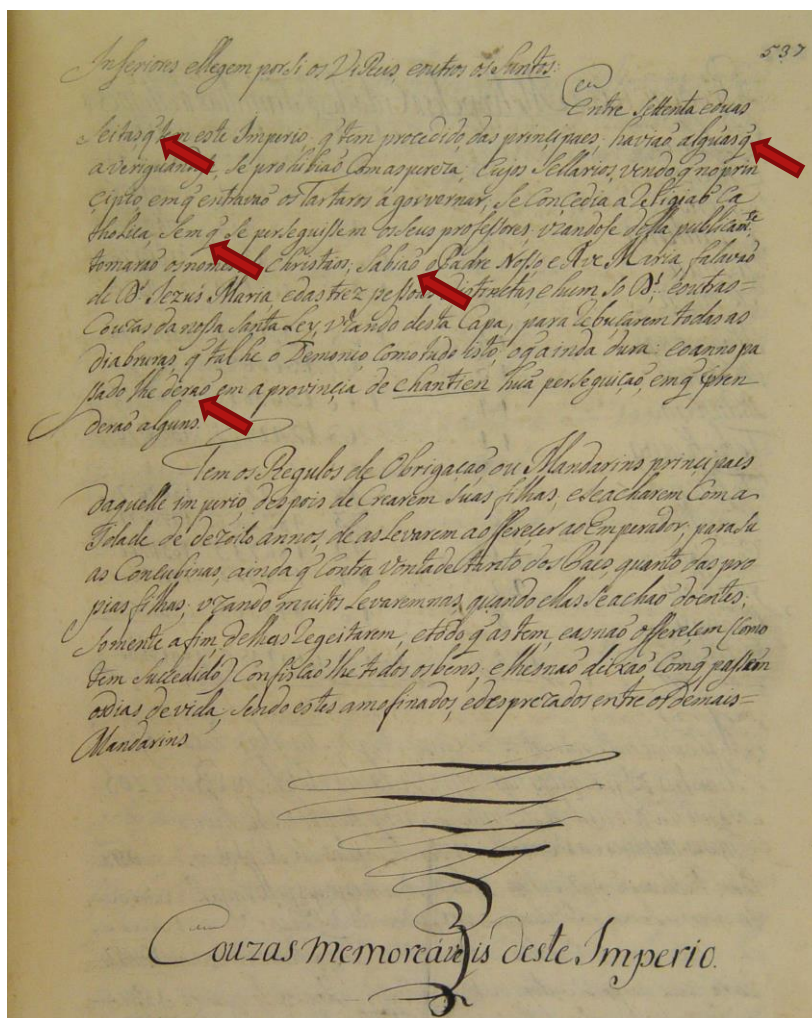 537
Inferiores ellegem por si os Vi Reus, e outros os Juntos:
Entre settenta e duas
Seitas q̃ tem este Imperio, q̃ tem procedido das principaes, havião algũas q̃
averiguandose, se prohibião com aspereza; Cujos Sectarios, vendo q̃ no prin
cipio, em q̃ entravão os Tartaros á governar, se Concedia a Religião Ca
tholica, sem q̃ se perseguissem os seus professores, vzandose della publicam.te
tomarão os nomes de Christãos, Sabião o Padre Nosso e Ave Maria, falavão
de D.s Jezus Maria, e das trez pessoas distinctas e hum só D.s, e outras=
Couzas da nossa Santa Ley, vzando desta Capa, para rebuçarem todas as
diabruras, q̃ tal he o Demonio, como tudo isto, o q̃ ainda dura: e o anno pa
ssado lhe derão em a provinçia de chantien huã perseguição, em q̃ pren
derão alguns.
Tem os Regulos de Obrigação, ou Mandarins principaes
daquelle imperio, despois de Crearem Suas filhas, e se acharem Com a
Idade de dezoito annos, de as Levarem a offereçer ao Emperador, para su
as Concubinas, ainda q̃ Contra Vontade tanto dos Paes, quanto das pro
pias filhas; vzando muitos Levaremnas, quando ellas se achão doentes,
somente a fim de lhas regeitarem, e todo q̃ as tem, e as não offereçem (Como
tem Succedido) Confiscão lhe todos os bens, e lhes não deixão Com q̃ passem
os dias de vida, sendo estes amofinados, e desprezados entre os demais=
Mandarins
Couzas memoreáveis deste Imperio.